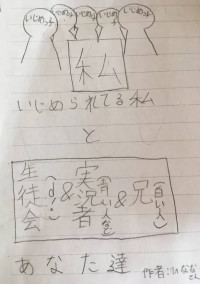 いじめっ子 いじめっ子 いじめっ子 いじめっ子
私
いじめられてる私
と
兄(百い人)
&
実況者(青い人など)
&
生徒会(d!)
あなた達
作者:いいななさん